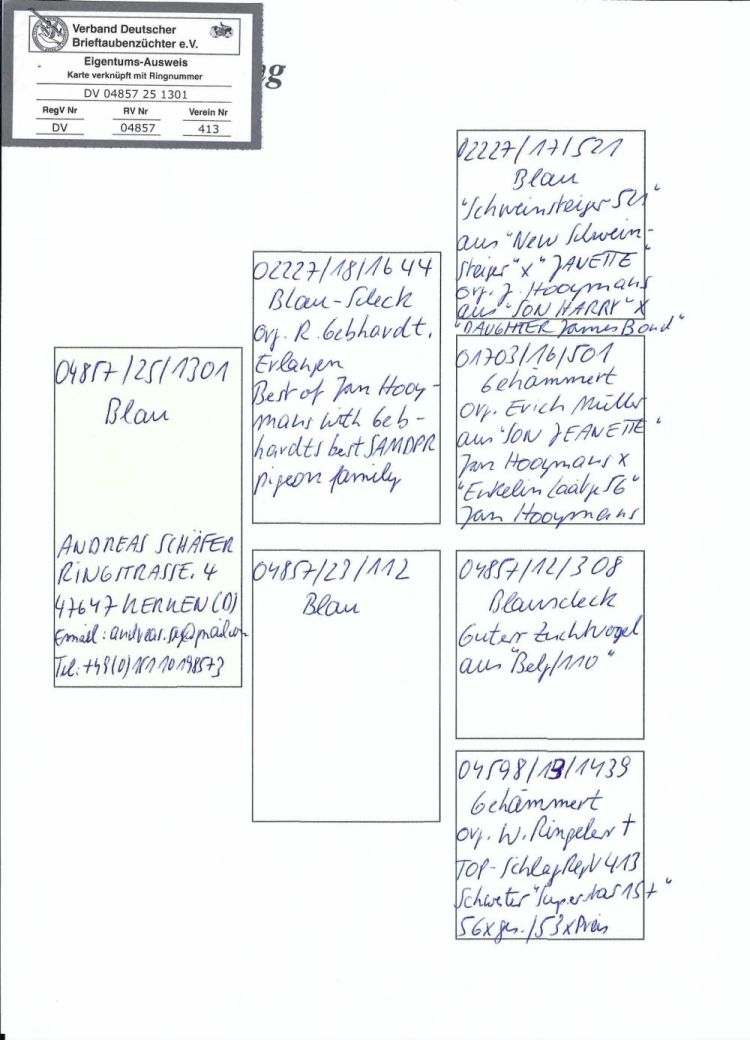 Verband Deutscher
Brieftaubenzüchter e.V.
Eigentums-Ausweis
Karte verknüpft mit Ringnummer
DV 04857 25 1301
RegV Nr RV Nr Verein Nr
DV 04857 413
04857/25/1301
Blau
ANDREAS SCHÄFER
RINGSTRASSE. 4
47647 KERKEN (D)
Email:
Tel.: +49(0)
02227/18/1644
Blau-Scheck
Org. R. Gebhardt,
Erlangen
Best of Jan Hooy-
mans with Geb-
hardts best SAMDPR
pigeon family
04857/23/112
Blau
02227/17/521
Blau
"Schweinsteiger 521"
aus "New Schwein-
steiger" x "JANETTE"
Org. J. Hooymans
aus "SON HARRY" X
"DAUGHTER James Bond"
01703/16/501
Gehämmert
Org. Erich Müller
aus "SON JEANETTE"
Jan Hooymans x
"Enkelin 56"
Jan Hooymans
04857/12/308
Blauscheck
Guter Zuchtvogel
aus "Belg/110"
04598/19/1439
Gehämmert
Org. W. †
TOP-Schlag RegV 413
Schwester "Superstar 157"
56x ges./53xPreis